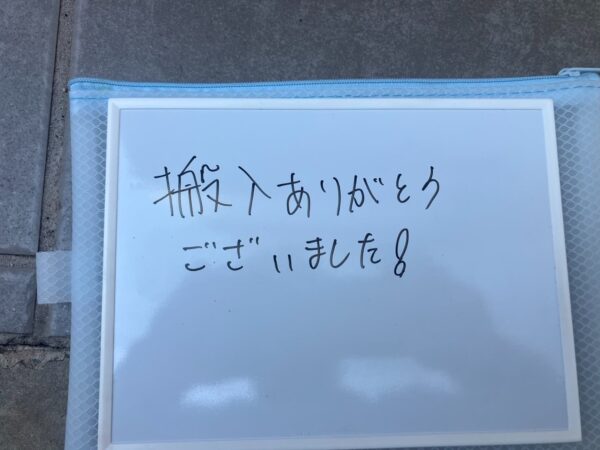 搬入ありがとう
ございました!